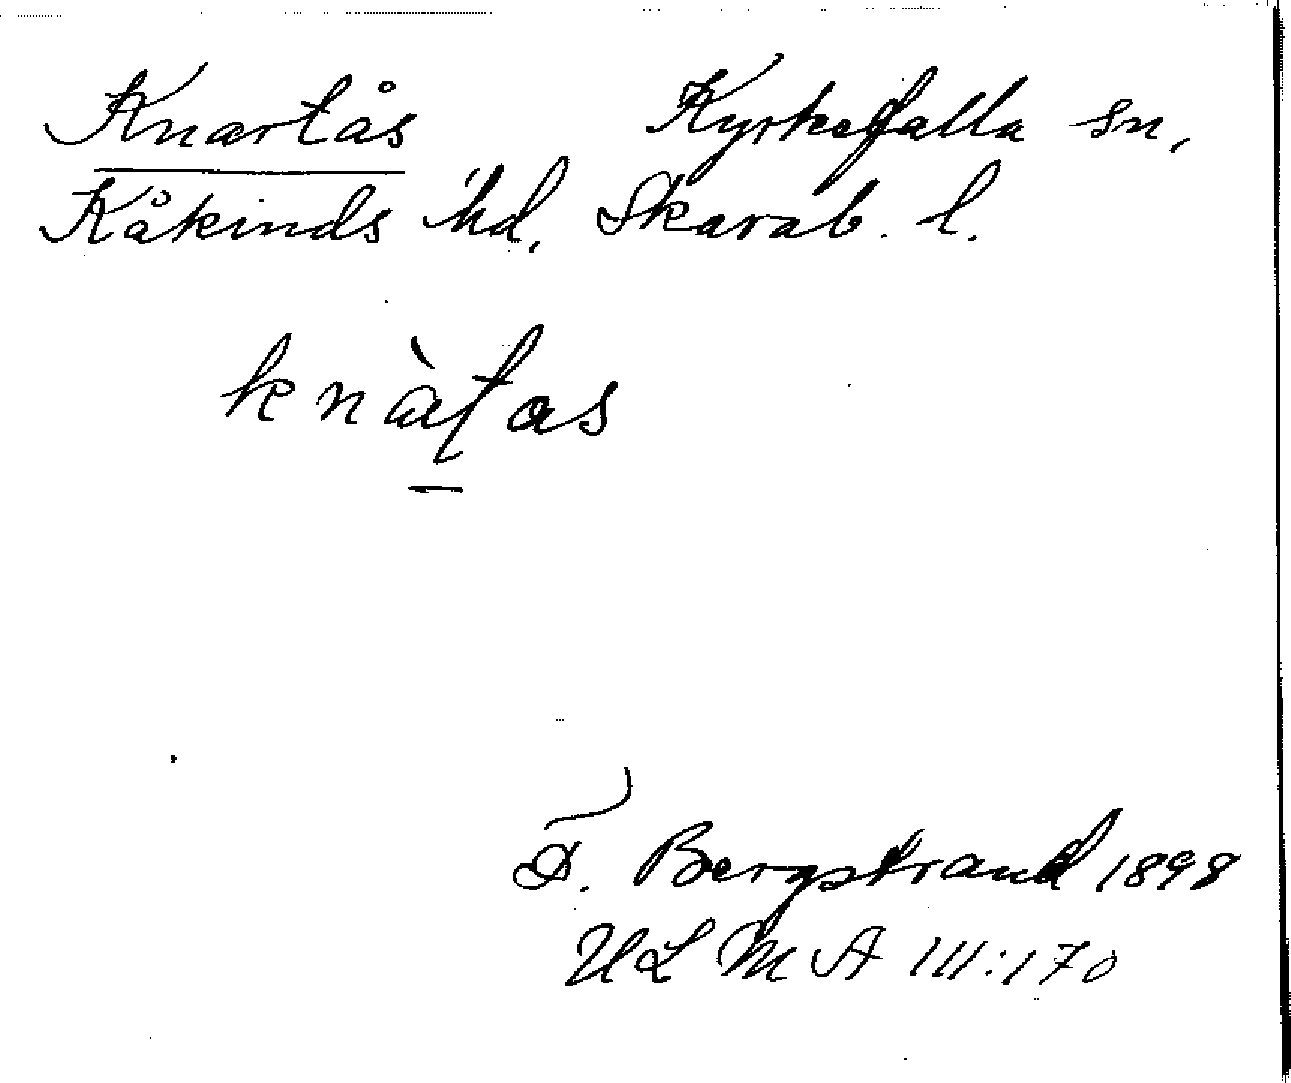 Knartås Kyrkefalla sn,
Kåkinds hd, Skarab. l.
knàtas
D. Bergstrand 1898
ULMA 111:170